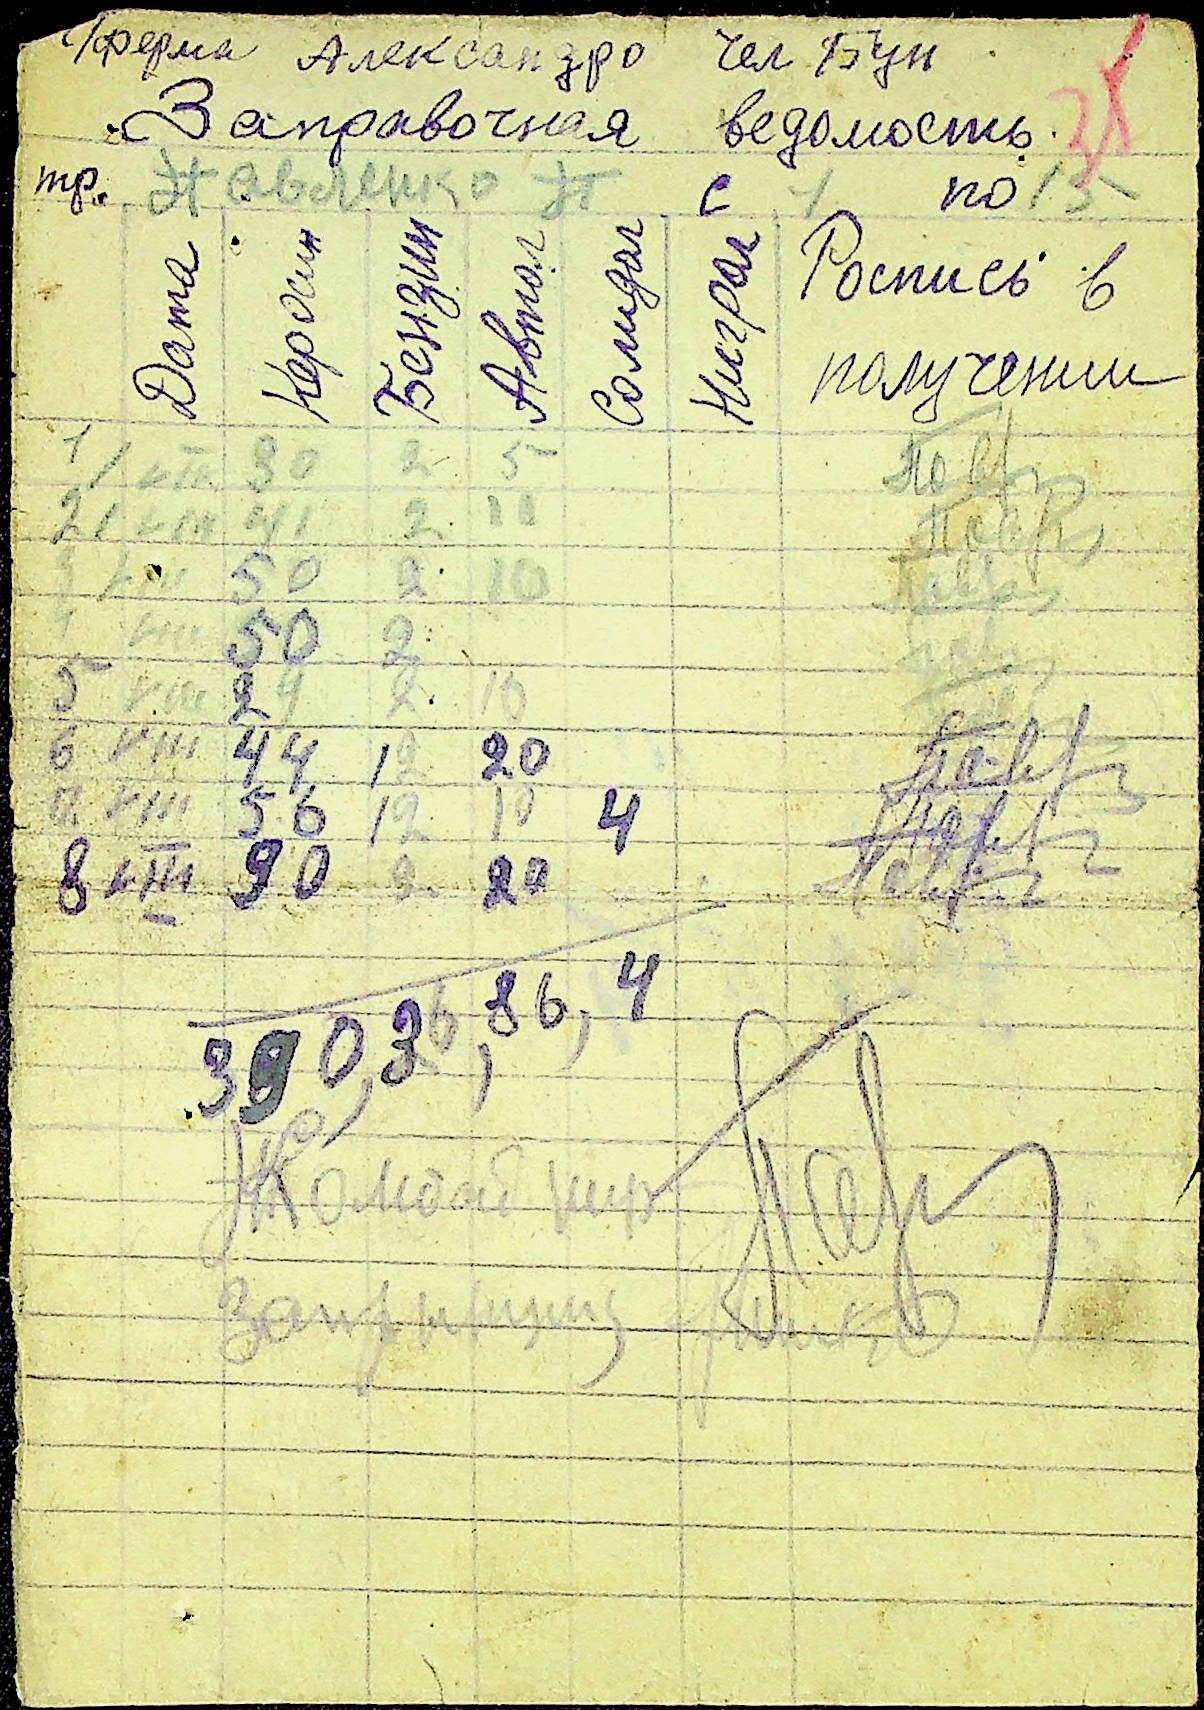 ферма Александро чел Бун
Заправочная ведомость 38
тр. Павленко П с 1 по 15
Дата Керосин Бензин Автол Солидол Нигрол Роспись в получении
1/VIII 30 2 5 Павл
2/VIII 41 2 10 Павл
3/VIII 50 2 10 Павл
VIII 50 2
5 VIII 29 2 10
6 VIII 44 12 20 Павл
VIII 56 12 10 4 Павл
8 VIII 90 2 20 Павл
390, 36, 86, 4
Комбайнер Павл